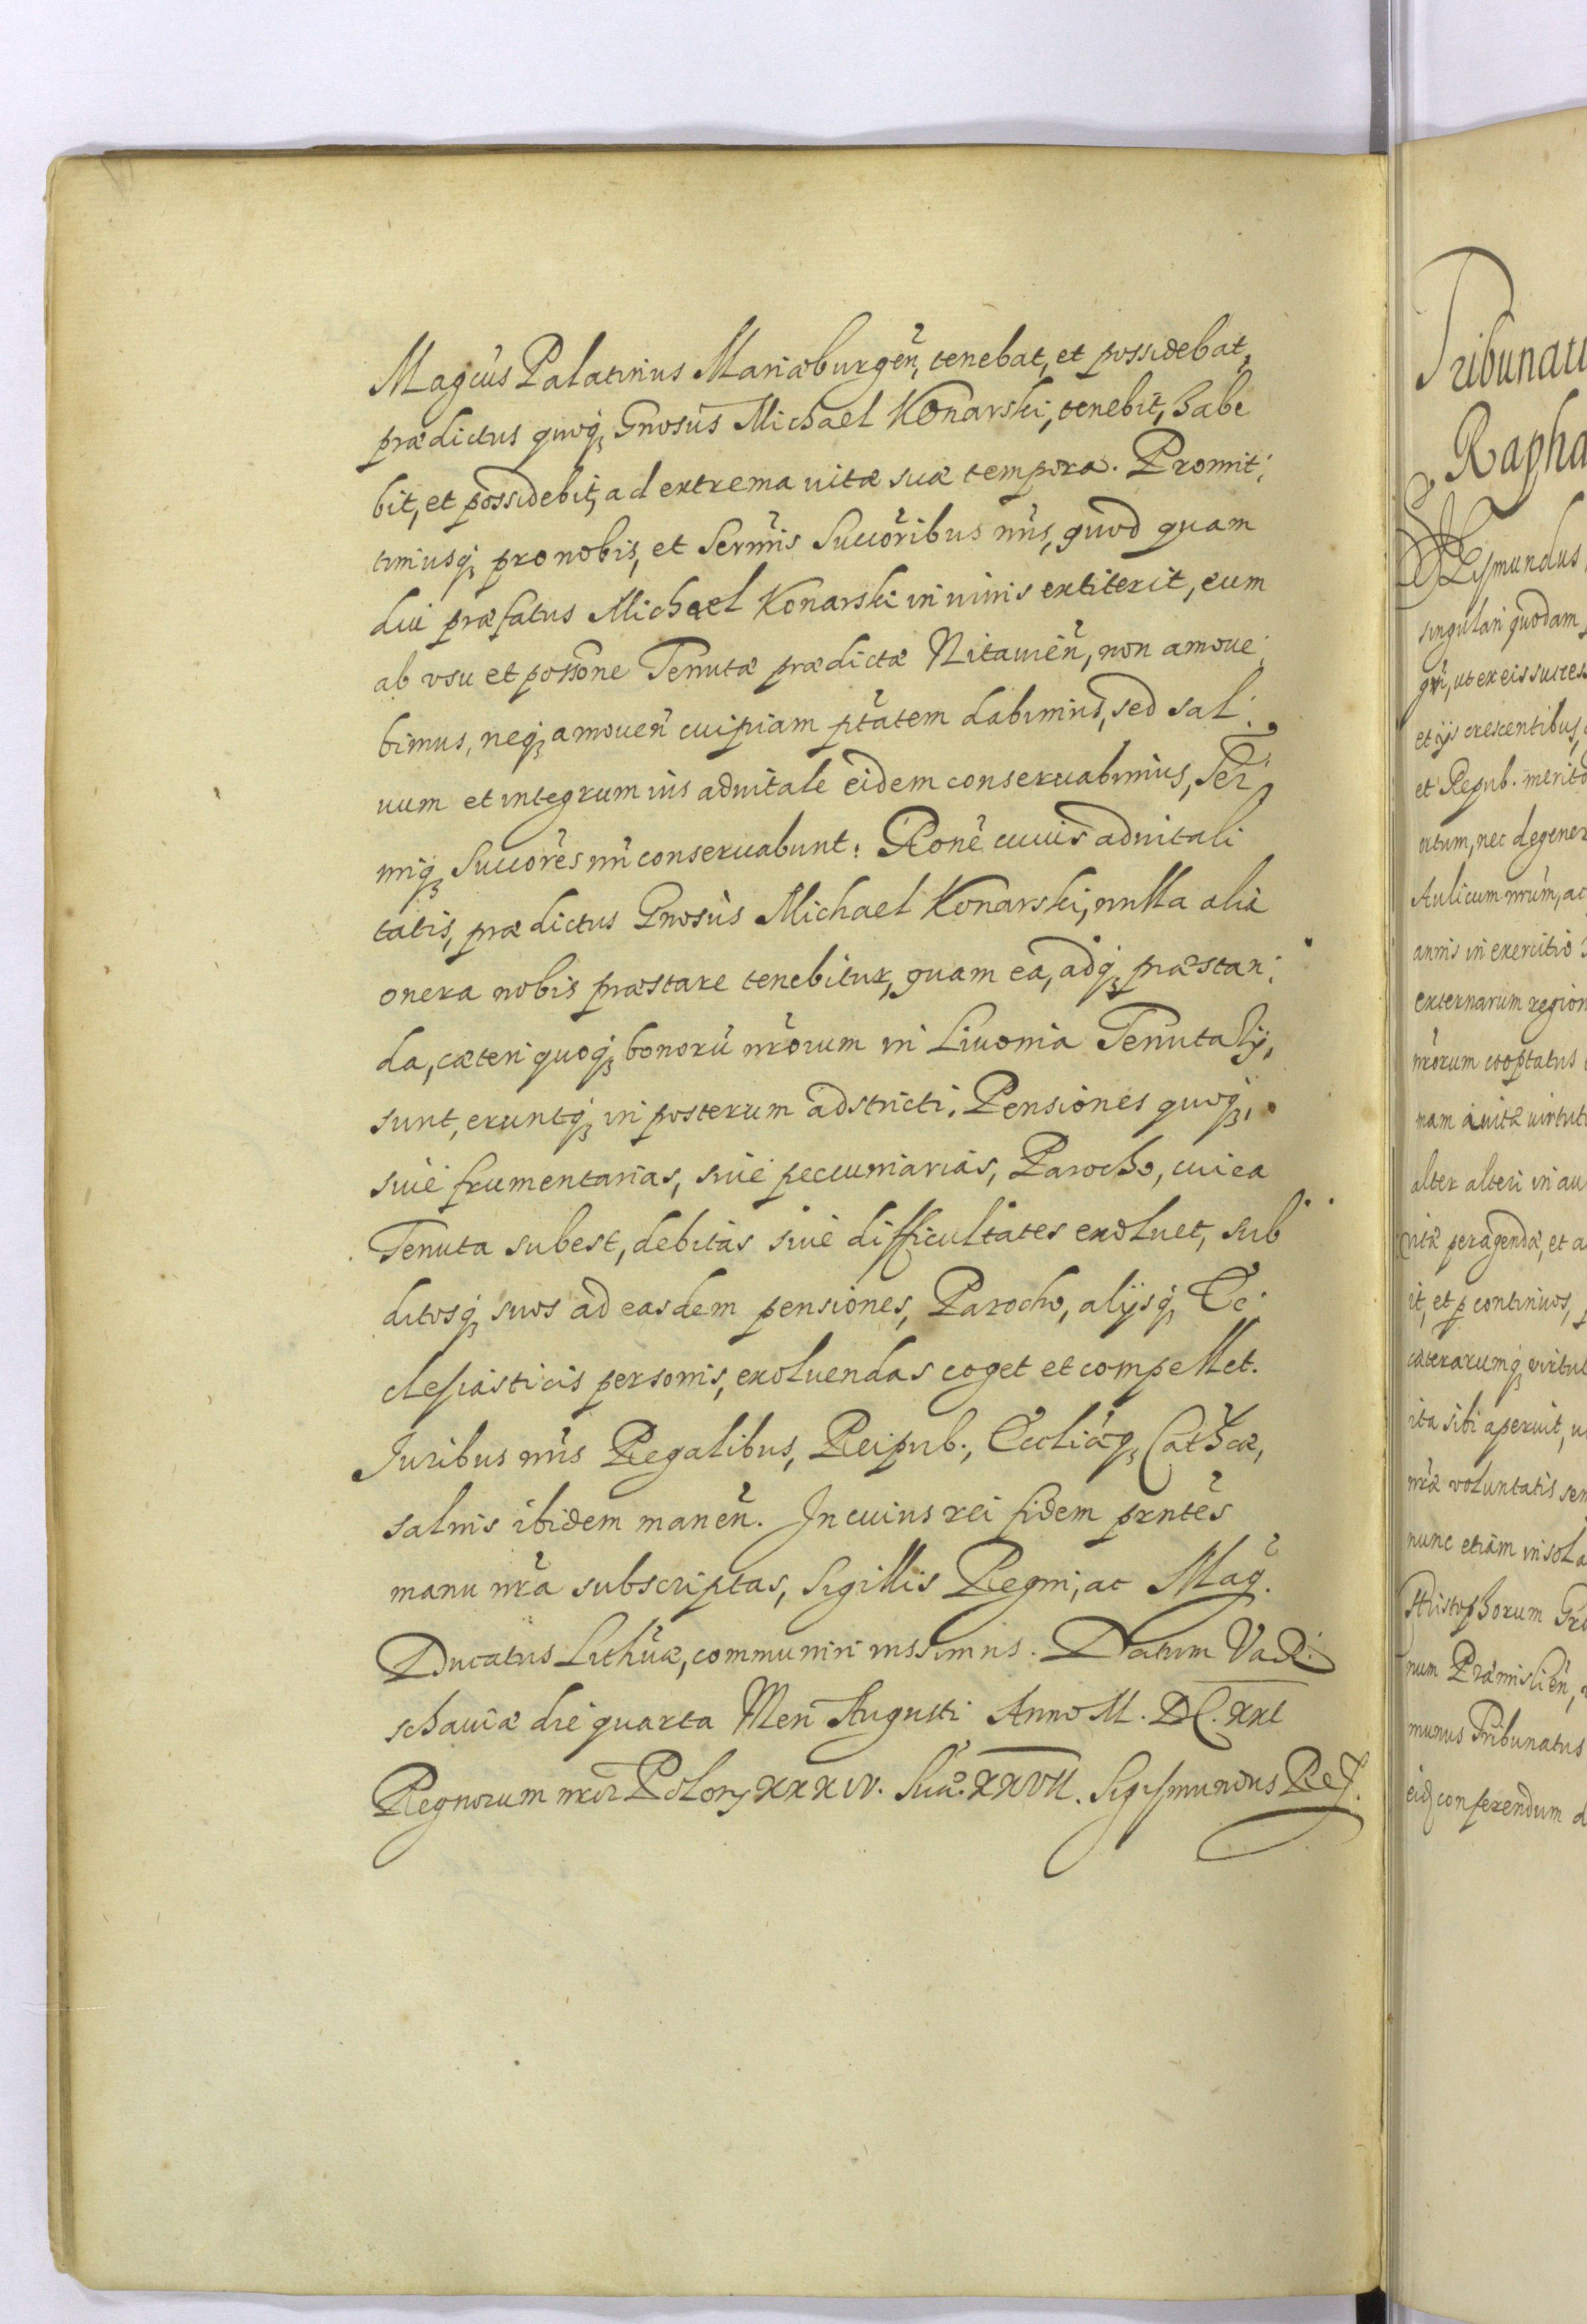 Magcus Palatinus Mariæburgen̄, tenebat, et possidebat,
prædictus quoq; Gnosus Michael Konarski, tenebit, habe
bit, et possidebit, ad extrema uitæ suæ tempora. Promit:
timusq; pro nobis, et Sermis Succoribus nris, quod quam
diu præfatus Michael Konarski in uiuis extiterit, eum
ab vsu et possone Tenutæ prædictæ Nitauien̄, non amoue:
bimus, neq; amouen̄ cuipiam ptatem dabimus, sed sal:
uum et integrum ius aduitale eidem conseruabimus, Ser:
miq; Succores nri conseruabunt. Rone cuius aduitali
tatis, prædictus Gnosus Michael Konarski, nulla alia
onera nobis præstare tenebitur, quam ea, ad q; præstan:
da, cæteri quoq; bonorū nrorum in Liuonia Tenutarij,
sunt, eruntq; in posterum adstricti. Pensiones quoq;,
siue frumentarias, siue pecuniarias, Parocho, cui ea
Tenuta subest, debitas siue difficultates exoluet, sub
ditosq; suos ad easdem pensiones, Parocho, alijsq; Ec:
clesiasticis personis, exoluendas coget et compellet.
Juribus nris Regalibus, Reipub., Eccliæq; Cathcæ,
saluis ibidem manen̄. In cuius rei fidem prntes
manu nra subscriptas, Sigillis Regni, ac Mag.
Ducatus Lithuæ, communiri iussimus. Datum Var:
schauiæ die quarta Men Augusti Anno M. DC. XXI
Regnorum nror Polon̄ XXXIV. Suæ. XXVII. Sigismundus Rex.
Tribunatu
Rapha
singulari quodam
et Repub. merito
ortum, nec degener
Aulicum nrum, ac
annis in exercitio
externarum region
nrorum cooptatus
nam auita uirtut
alter alteri in au
uitæ peragendæ, et a
it, et p continuos,
cæterarumq; uirtut
ita sibi aperuit, u
nræ voluntatis sen
nunc etiam in sola
num Præmislien̄,
munus Tribunatus
conferendum d